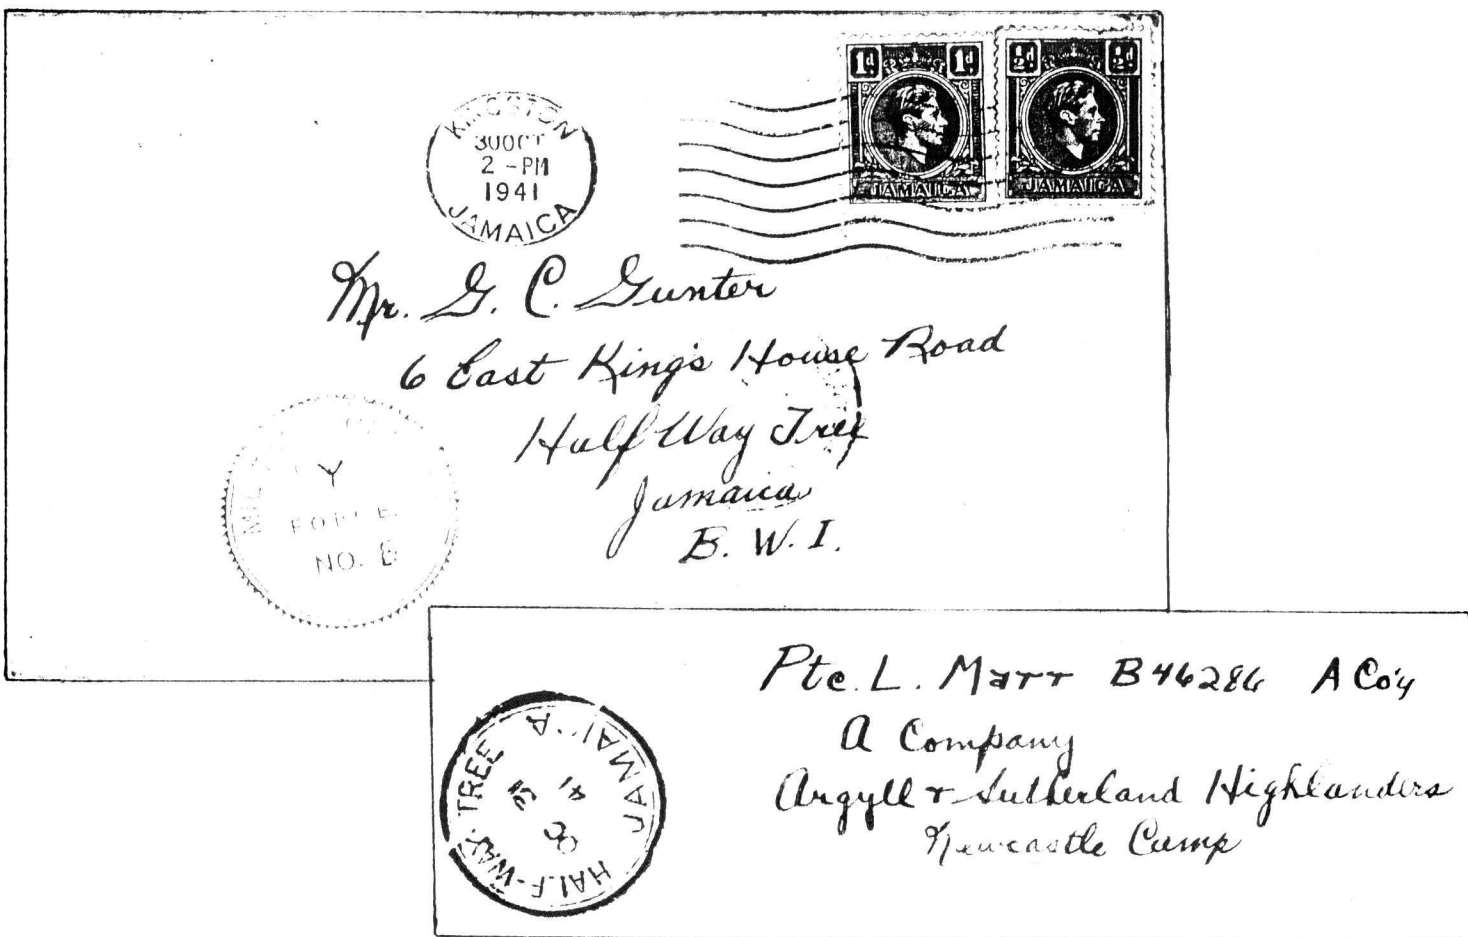 1d 1d
½d ½d
JAMAICA
JAMAICA
KINGSTON
30 OCT
2 - PM
1941
JAMAICA
Mr. G. C. Gunter
6 East King's House Road
Half Way Tree
Jamaica
B. W. I.
Y
FORCE
NO.
Pte. L. Marr B46286 A Co'y
A Company
Argyll & Sutherland Highlanders
Newcastle Camp
HALF-WAY-TREE
41
JAMAICA